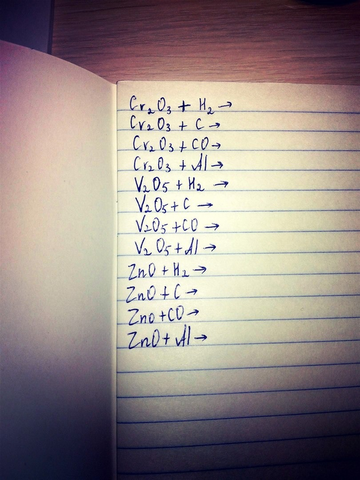 Cr₂O₃ + H₂ →
Cr₂O₃ + C →
Cr₂O₃ + CO →
Cr₂O₃ + Al →
V₂O₅ + H₂ →
V₂O₅ + C →
V₂O₅ + CO →
V₂O₅ + Al →
ZnO + H₂ →
ZnO + C →
ZnO + CO →
ZnO + Al →